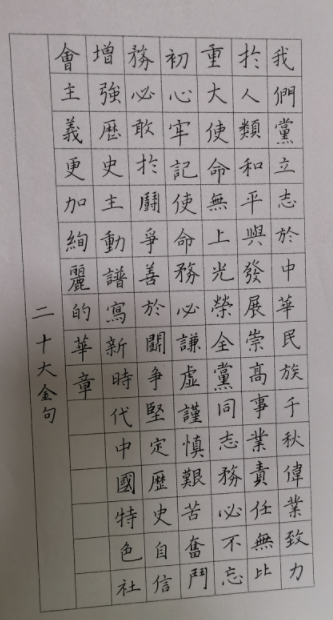 我們黨立志於中華民族千秋偉業致力
於人類和平與發展崇高事業責任無比
重大使命無上光榮全黨同志務必不忘
初心牢記使命務必謙虛謹慎艱苦奮鬥
務必敢於鬭爭善於鬭爭堅定歷史自信
增強歷史主動譜寫新時代中國特色社
會主義更加絢麗的華章
二十大金句